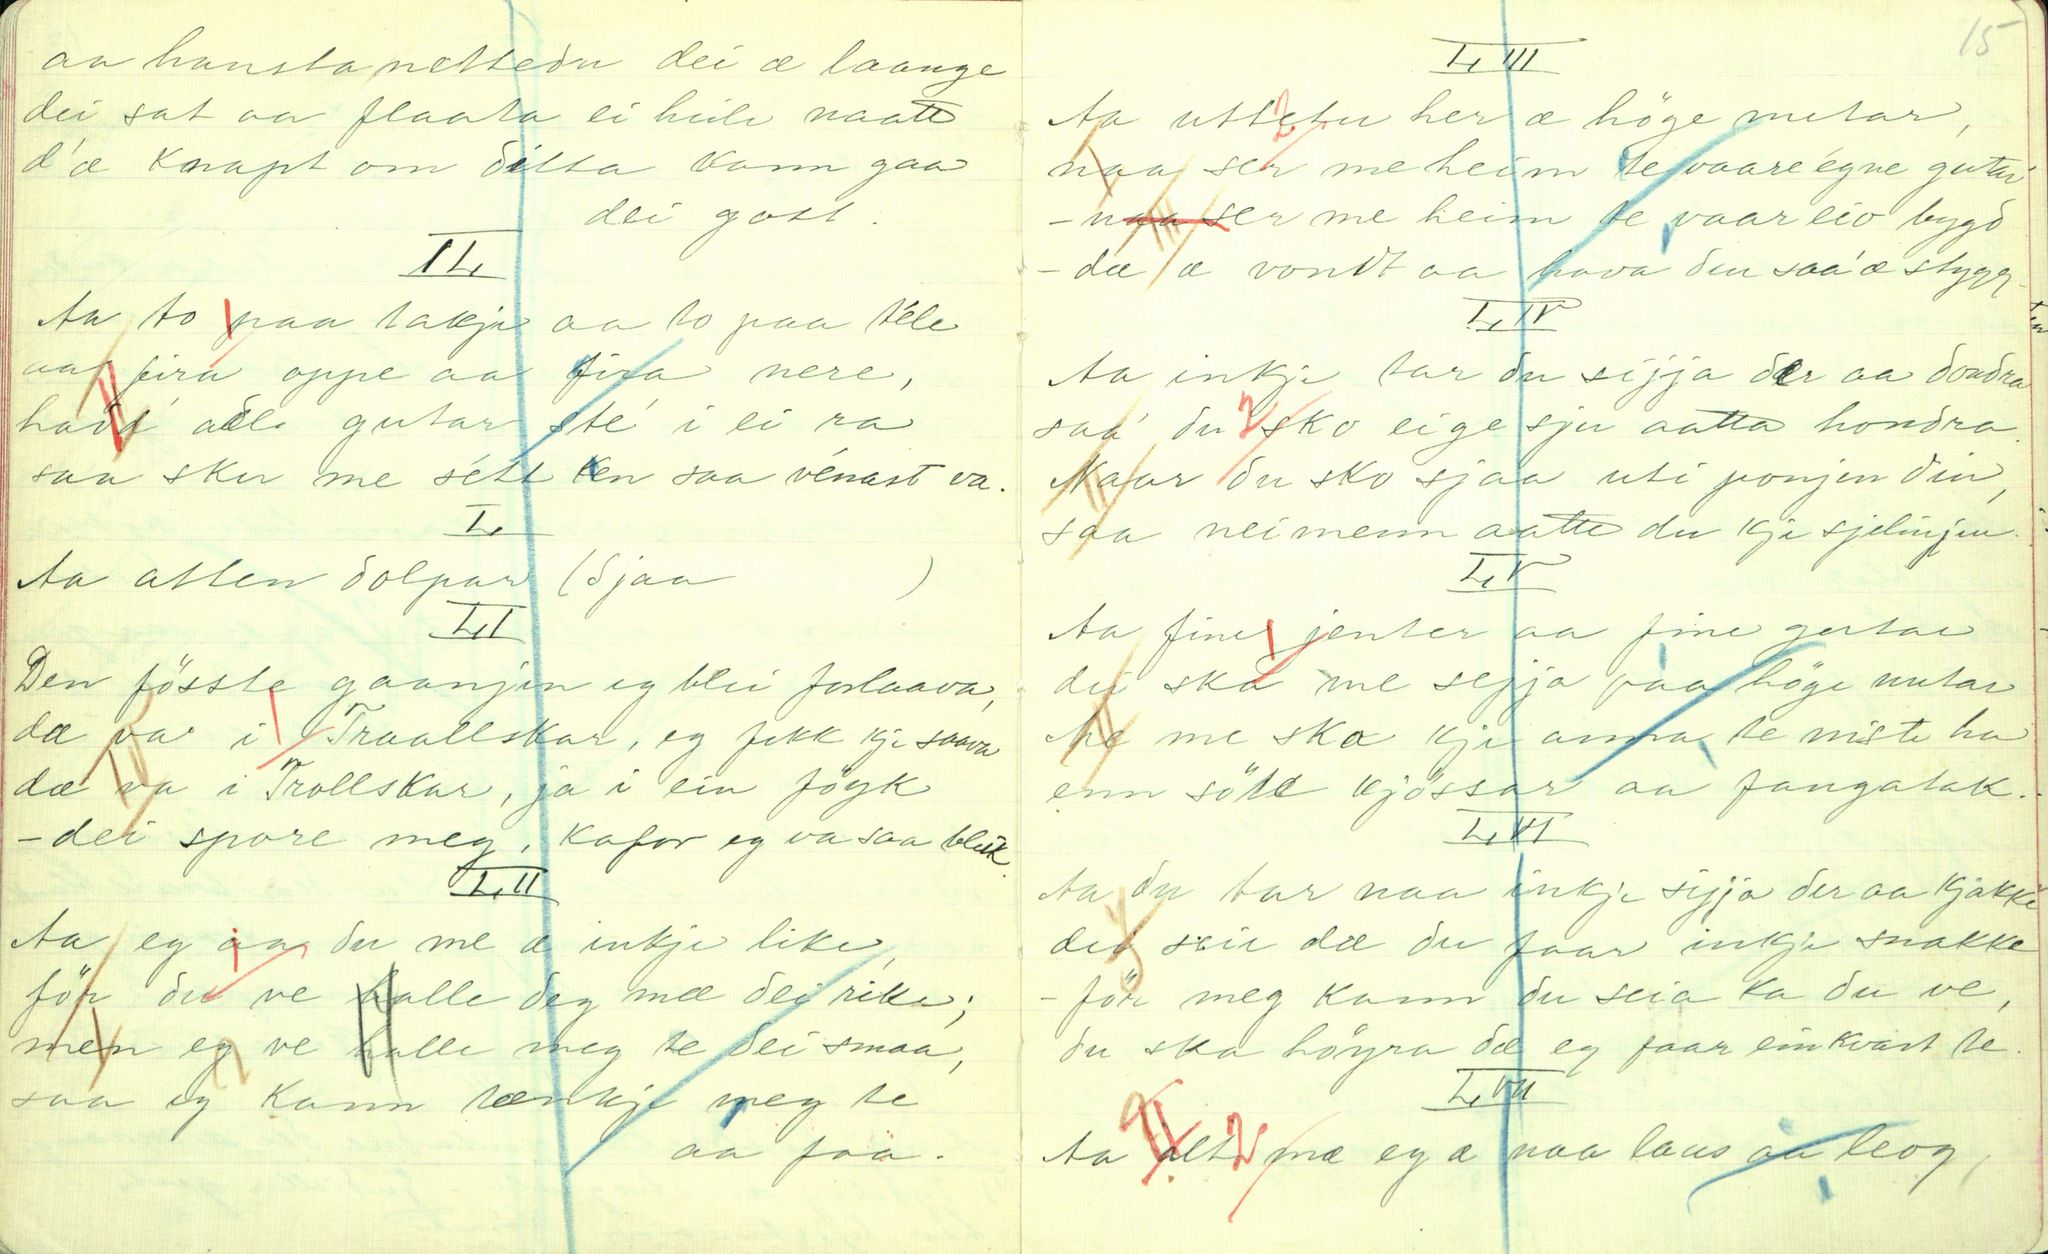 aa haustanettedn dei æ laange
dei sat aa flaata ei heile naatt
d'æ knapt om ditta kann gaa
dei gott.
IL
Aa to paa takje aa to paa tele
aa fira oppe aa fira nere,
hadi adle gutar sté i ei ra
saa sku me sétt ken saa vénast va.
L
Aa atten dolpar (sjaa )
LI
Den fösste gaanjin eg blei forlaava,
dæ va i Traallskar, eg fekk kje saava
dæ va i Trollskar, ja i ein föyk
- dei spore meg, kafor eg va saa bleik.
LII
Aa eg aa du me æ inkje like,
för du ve halle deg mæ dei rike;
men eg ve halle meg te dei smaa,
saa eg kann tænkje meg te
aa faa.
15
LIII
Aa uttetu her æ höge nutar,
naa ser me heim te vaare egne gutar
- naa ser me heim te vaar eio bygd
- dæ æ vondt aa hava den saa æ stygg
LIV
Aa inkje tar du sijja der aa dondra
saa du sko eige sju aatta hondra.
Naar du sko sjaa uti ponjen din,
saa neimenn aatte du kje sjelinjen.
LV
Aa fine jenter aa fine gutar
dei ska me sejja paa höge nutar
he me ska kje anna te niste ha
enn söte kjössar aa fangatak.
LVI
Aa du tar naa inkje sijja der aa kjakke
dei seie dæ du faar inkje snakke
- för meg kann du seia ka du ve,
du ska höyra dæ eg faar einkvart te.
LVII
Aa alt mæ eg æ naa laus aa leog,